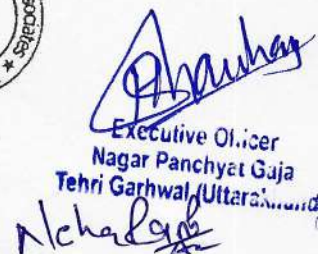 sociates *
Executive Officer
Nagar Panchyat Gaja
Tehri Garhwal (Uttarakhand
Neha